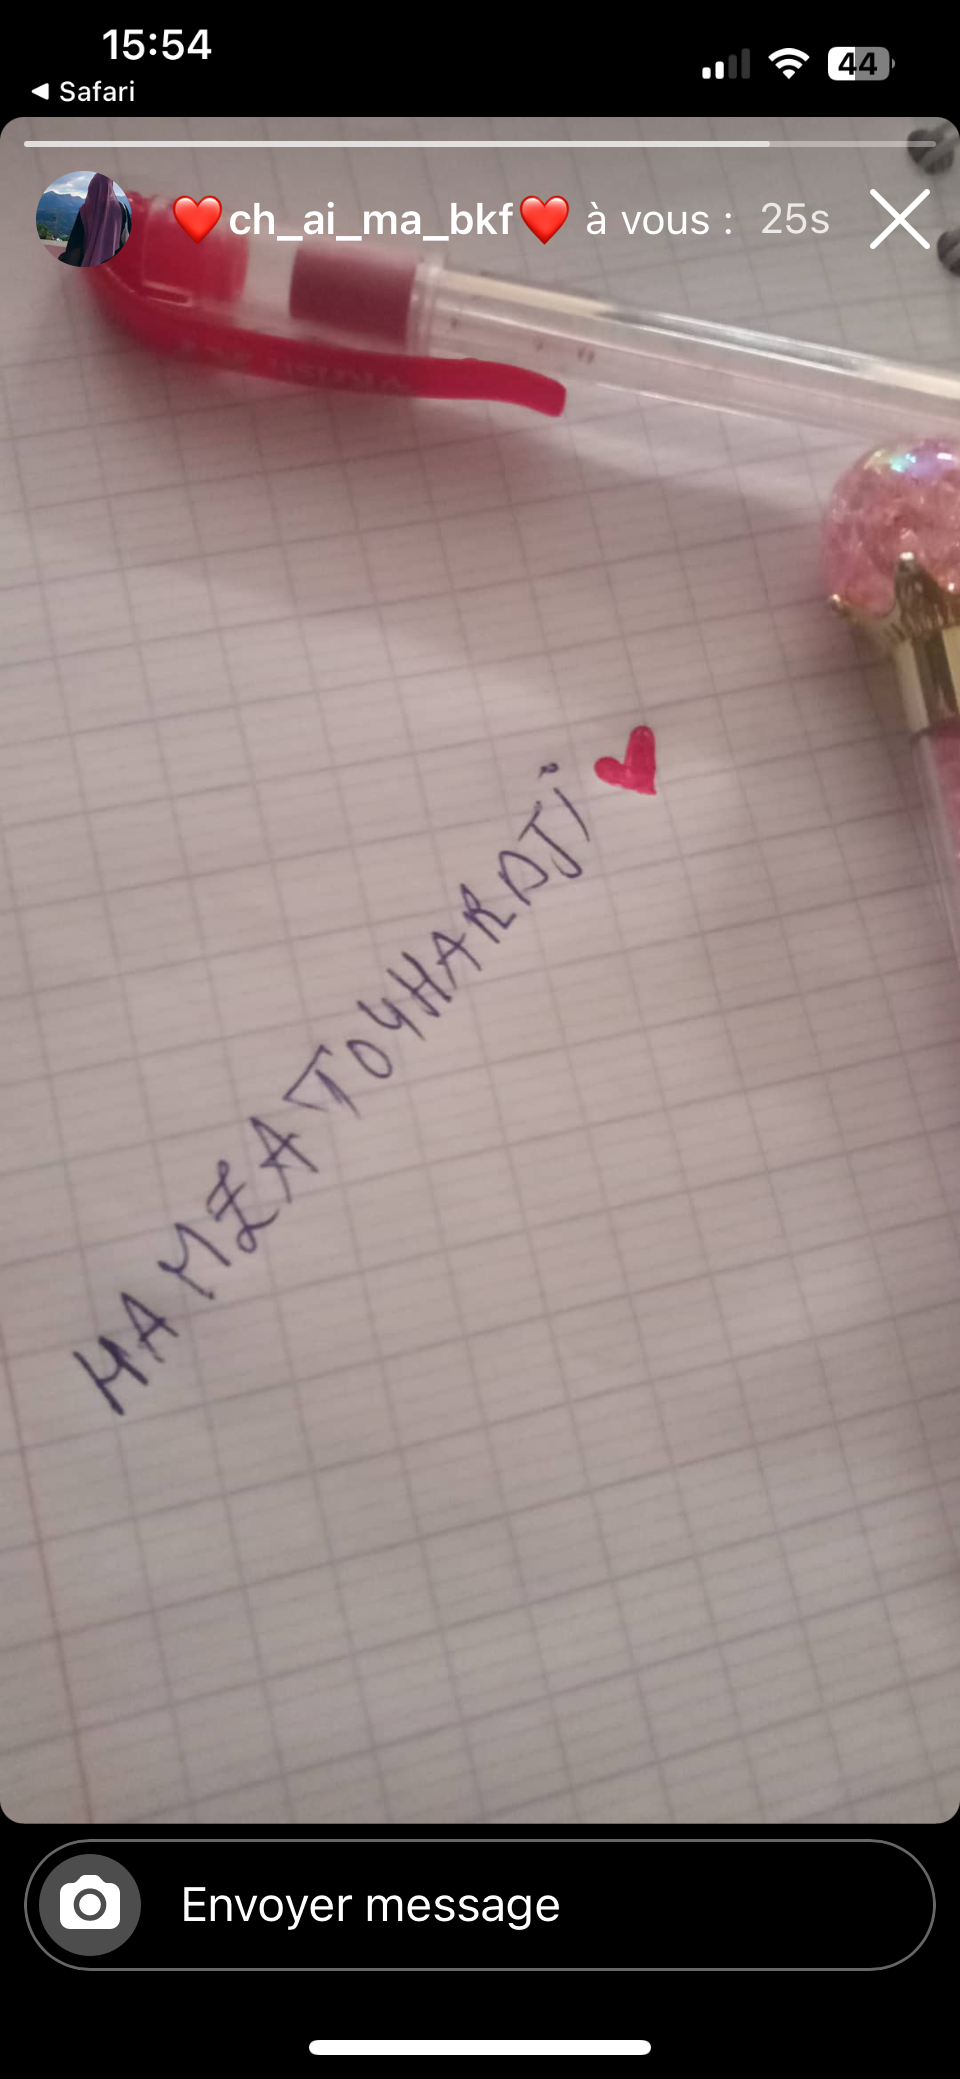 15:54
44
◀ Safari
❤️ch_ai_ma_bkf❤️ à vous : 25s
HAMZA TOUHARDJi
Envoyer message